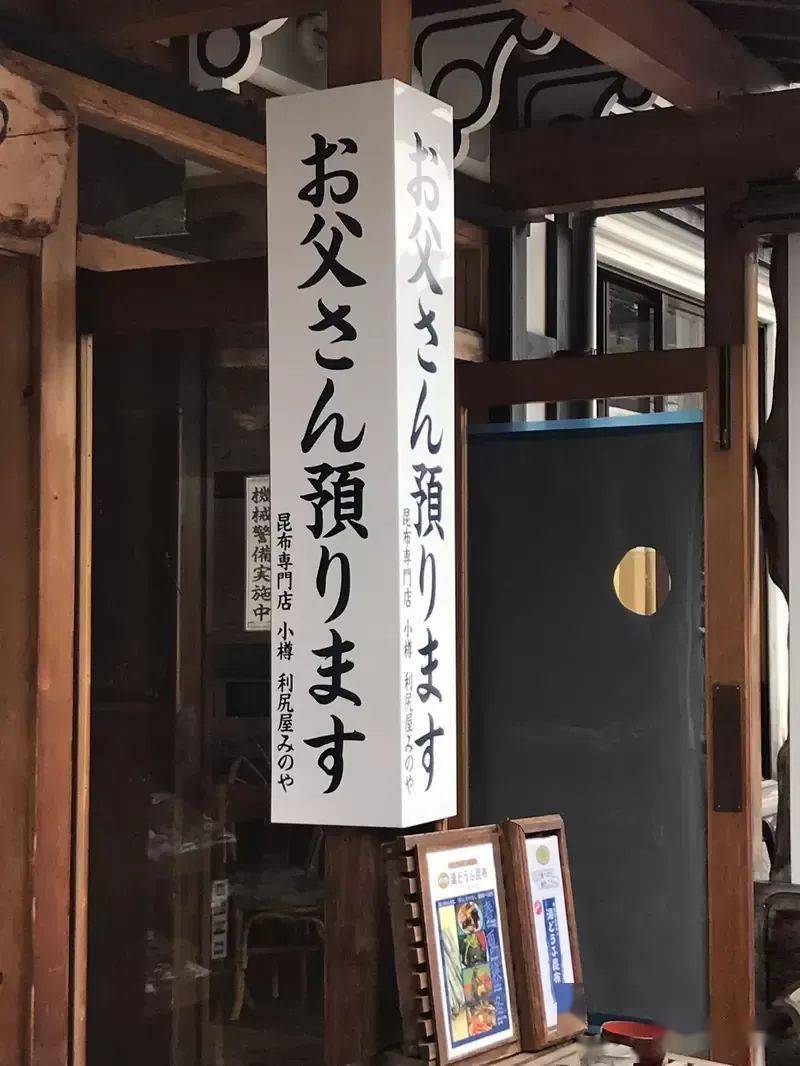 お父さん預ります
昆布専門店 小樽 利尻屋みのや
お父さん預ります
昆布専門店 小樽 利尻屋みのや
機械警備実施中
湯どうふ昆布
湯どうふ昆布